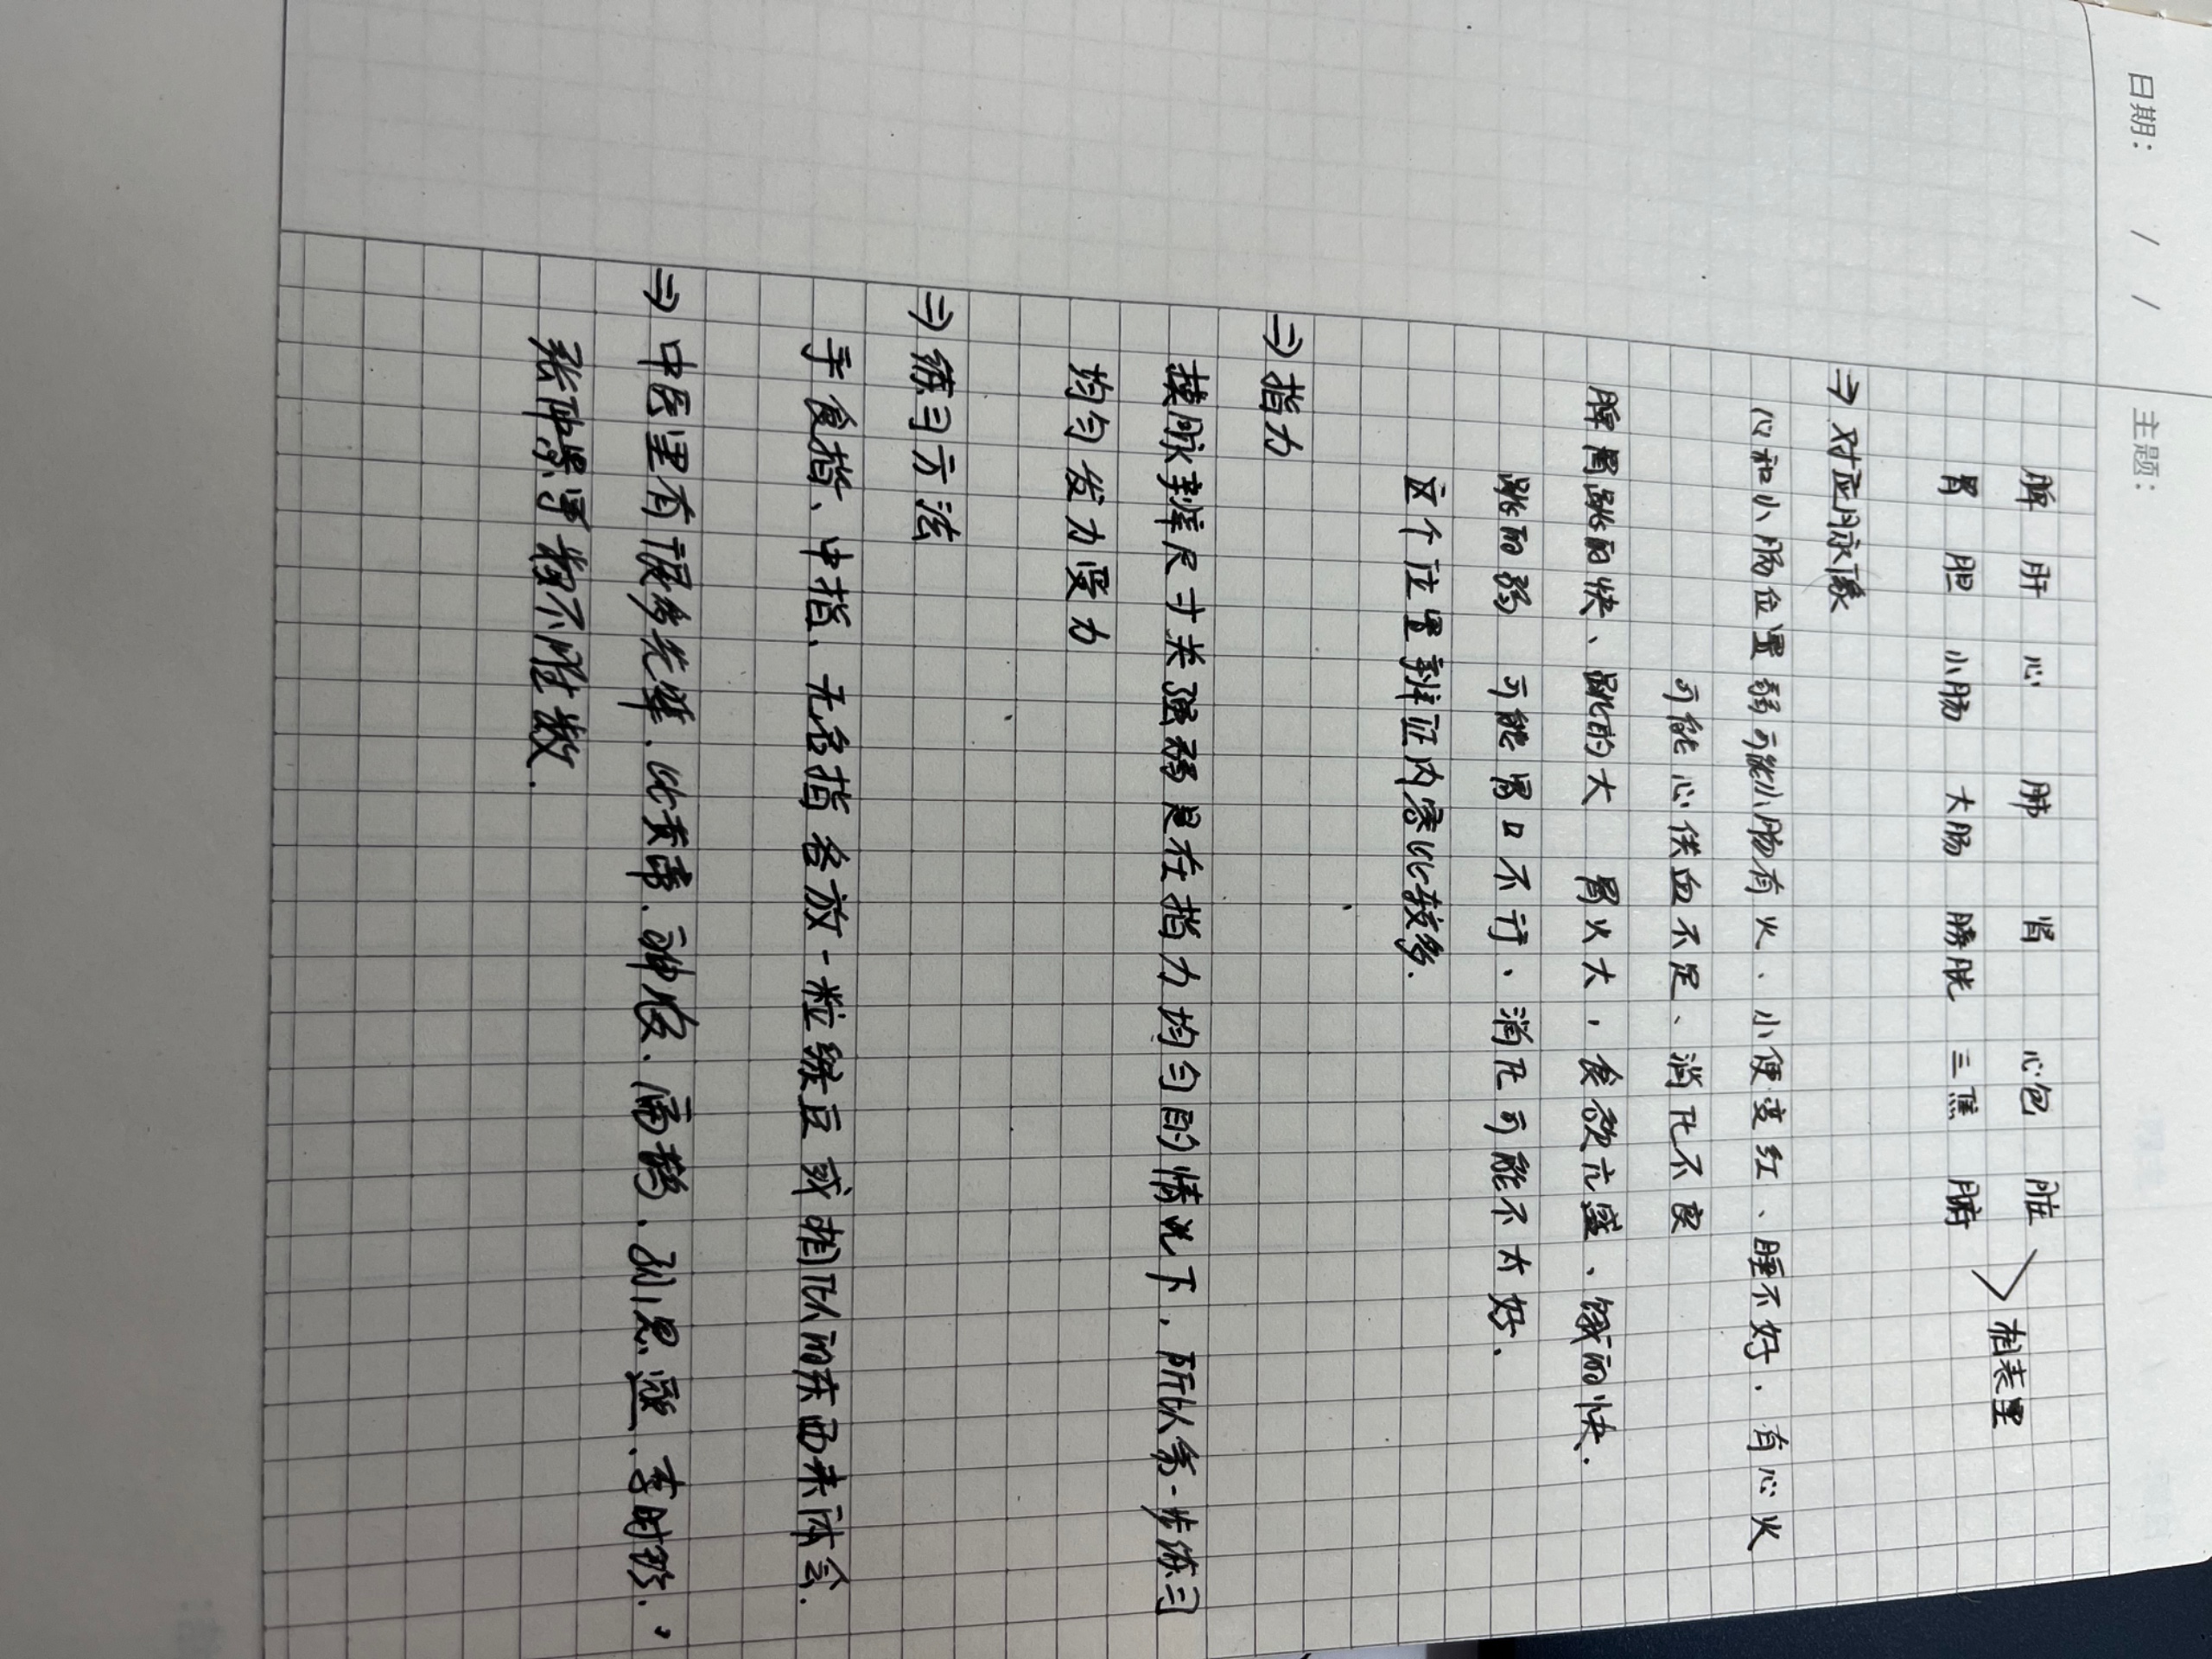 日期： / /
主题：
脾 肝 心 肺 肾 心包 脏
胃 胆 小肠 大肠 膀胱 三焦 腑 相表里
⇒ 对应脉象
心和小肠位置弱可能小肠有火、小便变红、睡不好．有心火
可能心供血不足、消化不良
脾胃跳的快、跳的大 胃火大，食欲亢盛、饿的快．
跳的弱 可能胃口不行、消化可能不太好．
这个位置辩证内容比较多．
⇒ 指力
摸脉掌握尺寸关强弱是在指力均匀的情况下．所以第一步练习
均匀发力受力
⇒ 练习方法
手食指、中指、无名指各放一粒绿豆或相似的东西来体会．
⇒ 中医里有很多先辈．比黄帝．神农．扁鹊．孙思邈．李时珍．
张仲景等数不胜数．